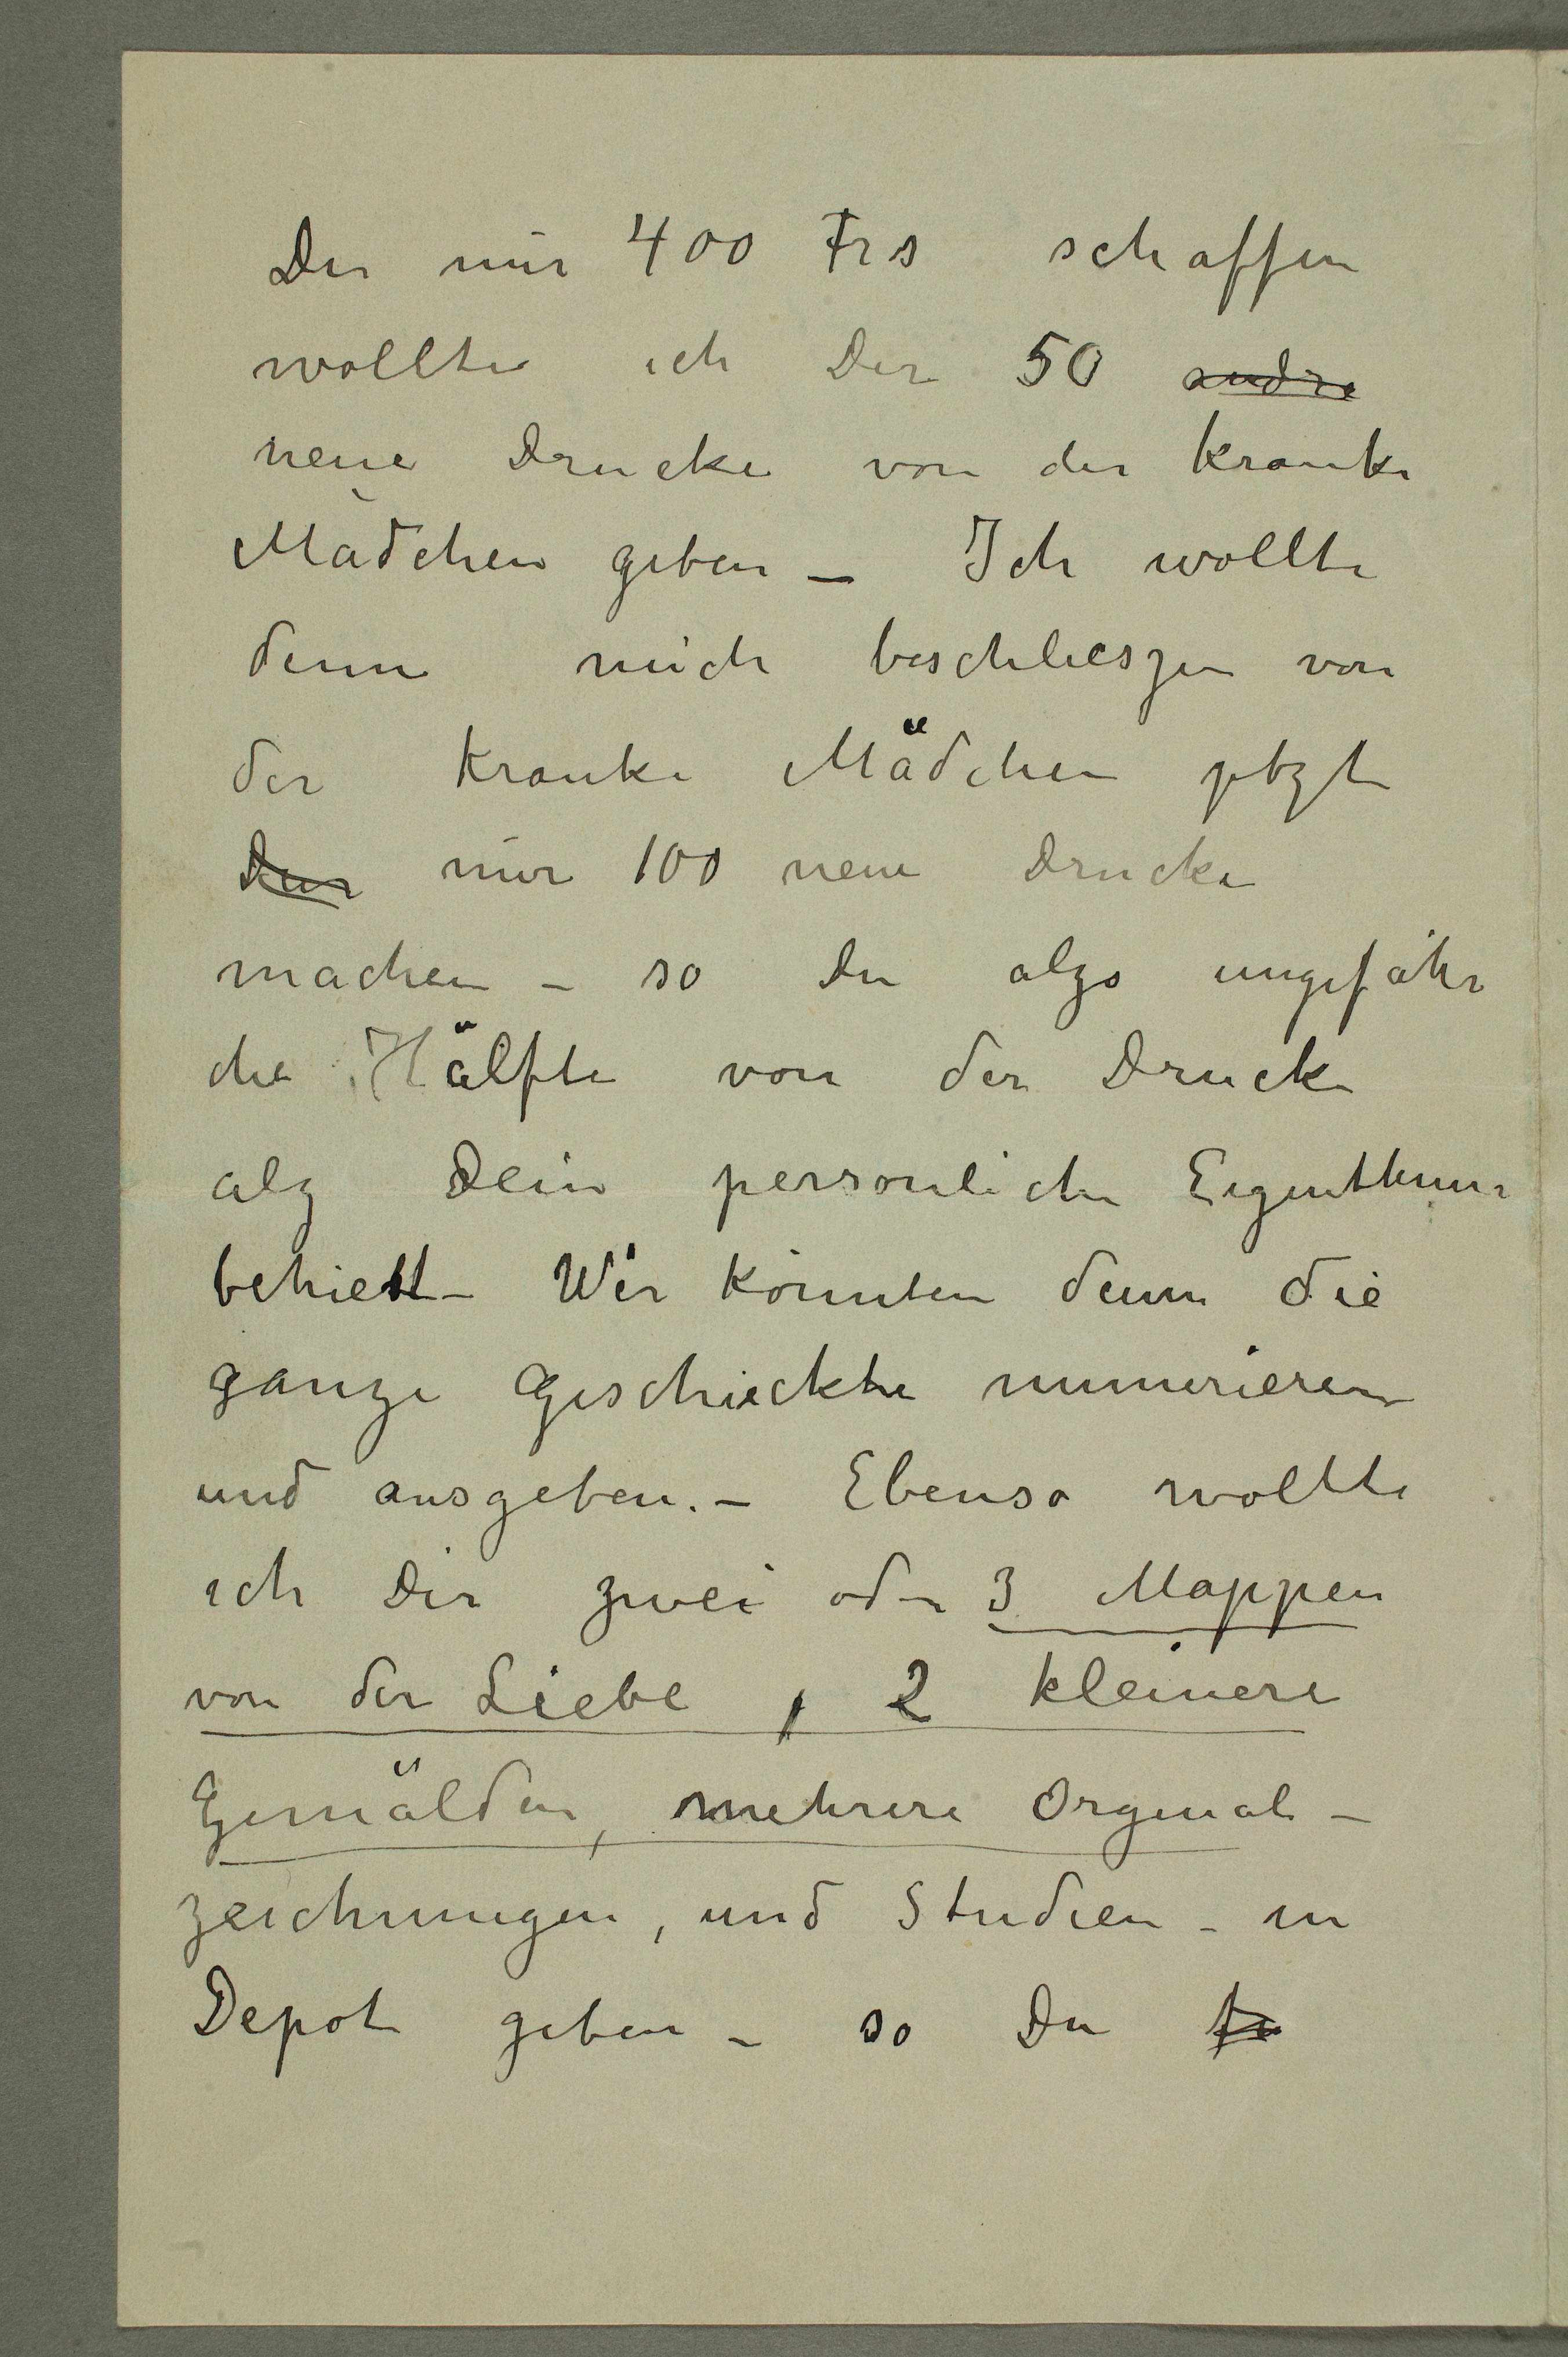 Du mir 400 Frs schaffen
wollte ich Dir 50 andre
neue Drucke von der kranke
Mädchen geben – Ich wollte
denn mich beschlieszen von
der kranke Mädchen jetzt
Dur nur 100 neue Drucke
machen – so Du alzo ungefähr
die Hälfte von der Drucke
alz Dein personliche Eigenthum
behielt – Wir könnten denn die
ganze Geschickte numerieren
und ausgeben. – Ebenso wollte
ich Dir zwei oder 3 Mappen
von der Liebe, 2 kleinere
Gemälden, mehrere Orginal-
zeichnungen, und Studien – in
Depot geben – so Du